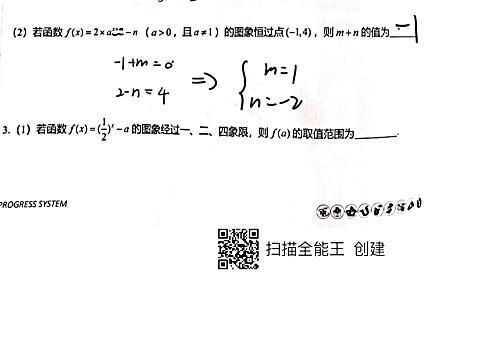 (2) 若函数 f(x)=2×a^{x+m}-n (a>0, 且 a≠1) 的图象恒过点(-1,4), 则 m+n 的值为 -1
-1+m=0
2-n=4
⇒ { m=1
n=-2
3. (1) 若函数 f(x)=(1/2)^x-a 的图象经过一、二、四象限, 则 f(a) 的取值范围为______.
PROGRESS SYSTEM
扫描全能王 创建